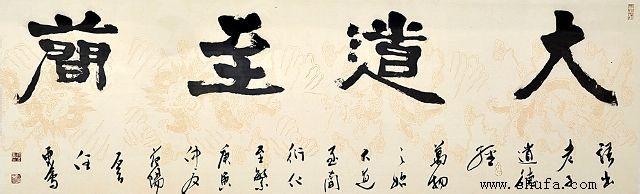 大道至簡
語出
老子
道德
經
萬物
之始
大道
至簡
衍化
至繁
庚寅
仲夏
shufa.com